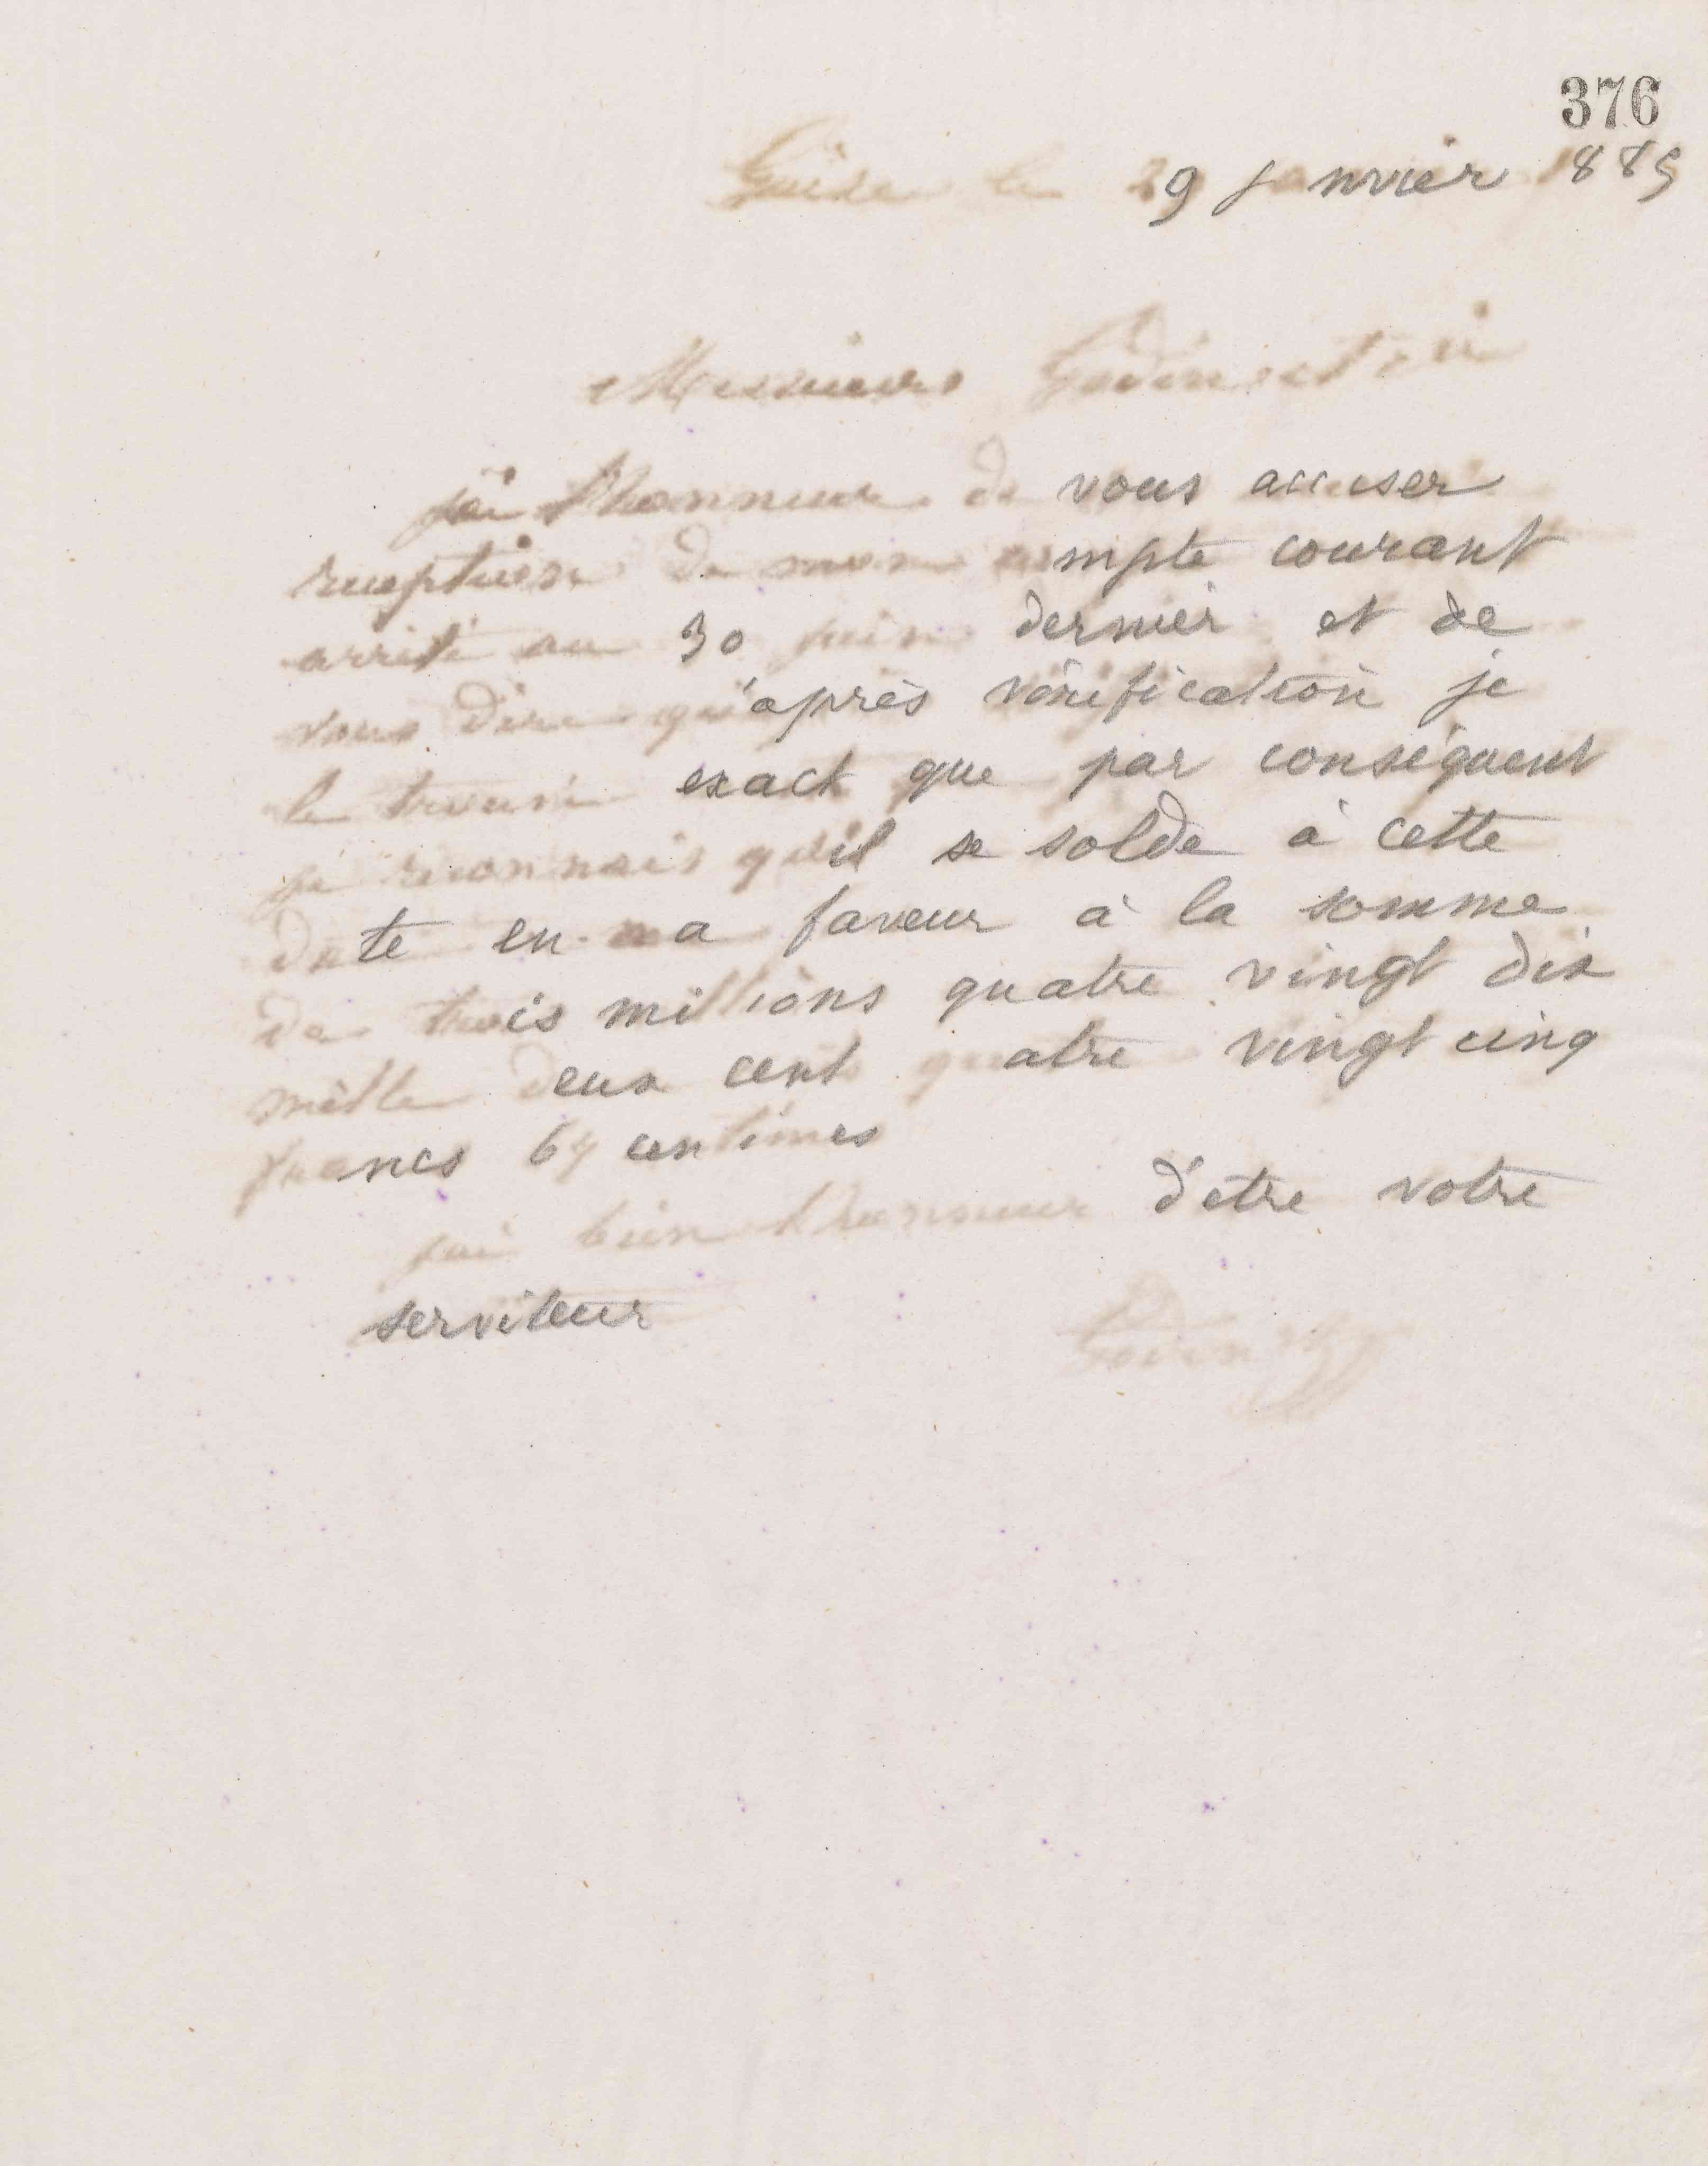 376
Guise le 29 janvier 1885
Messieurs Godin et Cie
j'ai l'honneur de vous accuser
reception de mon compte courant
arrêté au 30 juin dernier et de
vous dire qu'après vérification je
le trouve exact que par conséquent
je reconnais qu'il se solde à cette
date en ma faveur à la somme
de trois millions quatre vingt dix
mille deux cent quatre vingt cinq
francs 64 centimes
j'ai bien l'honneur d'etre votre
serviteur
Godin